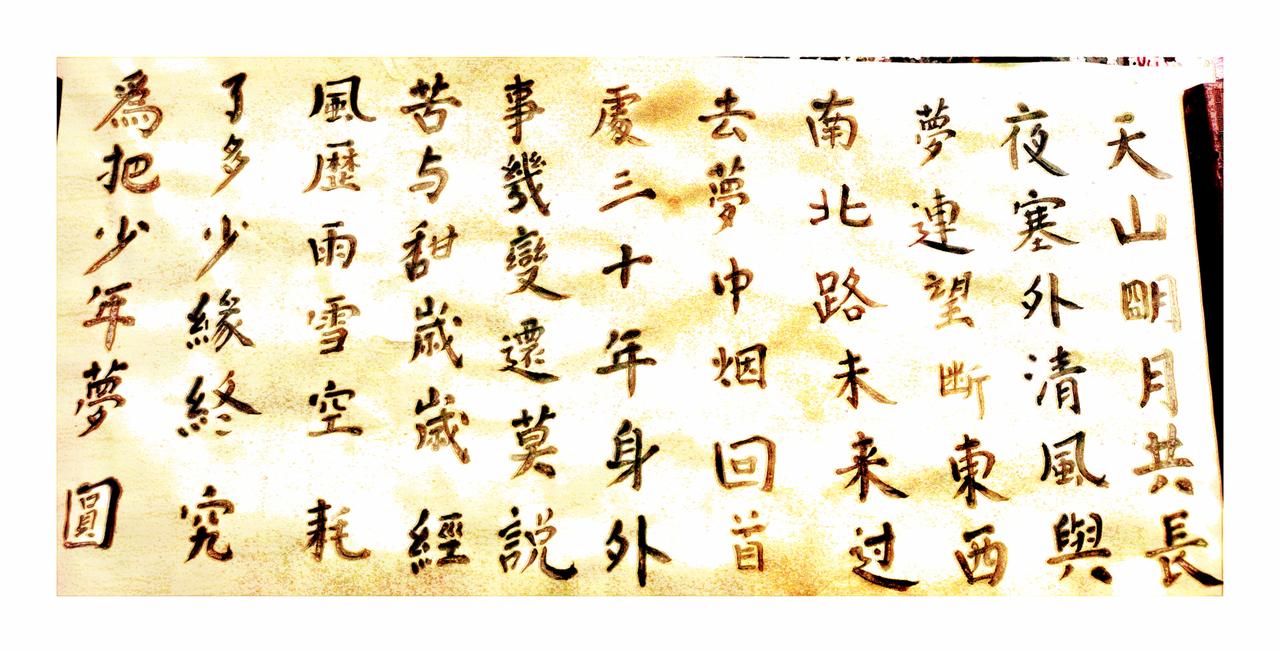 天山明月共長
夜塞外清風與
夢連望断東西
南北路未来过
去夢中烟回首
處三十年身外
事幾變還莫說
苦与甜歲歲經
風歷雨雪空耗
了多少緣終究
爲把少年夢圓